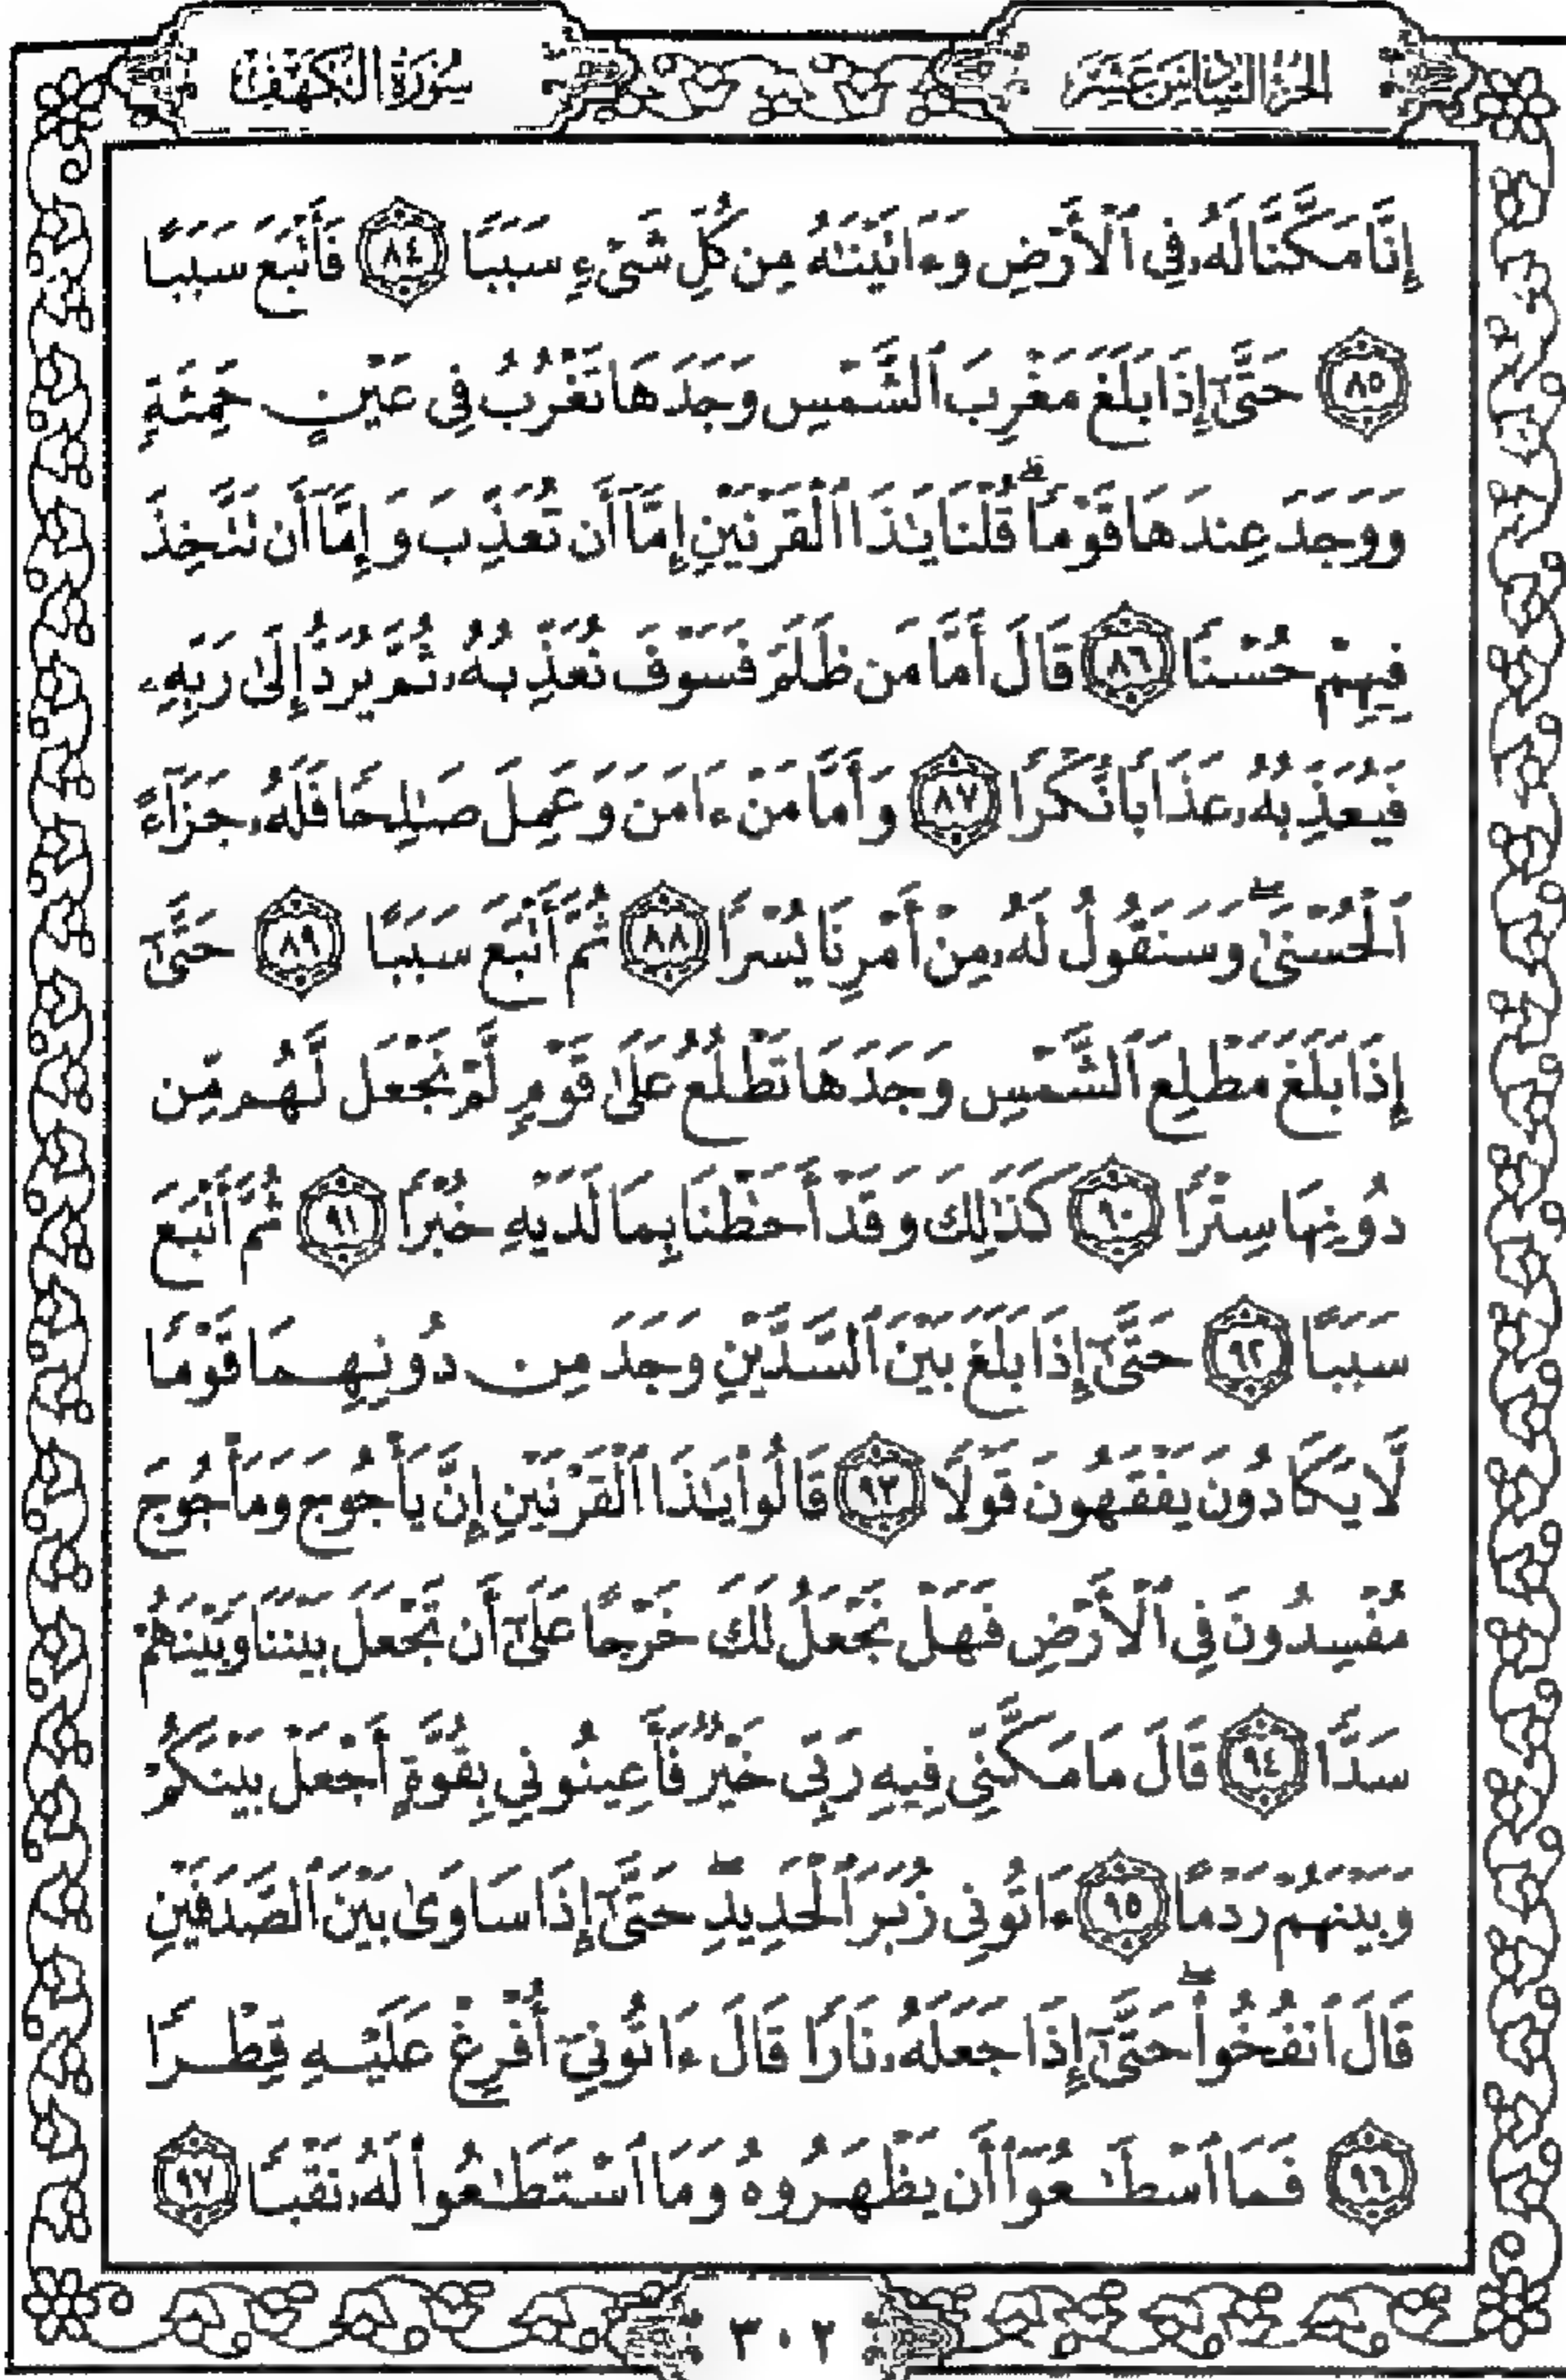 الجزء السادس عشر
سورة الكهف
إِنَّا مَكَّنَّا لَهُۥ فِى ٱلْأَرْضِ وَءَاتَيْنَٰهُ مِن كُلِّ شَىْءٍ سَبَبًا ٨٤ فَأَتْبَعَ سَبَبًا
٨٥ حَتَّىٰٓ إِذَا بَلَغَ مَغْرِبَ ٱلشَّمْسِ وَجَدَهَا تَغْرُبُ فِى عَيْنٍ حَمِئَةٍ
وَوَجَدَ عِندَهَا قَوْمًا ۗ قُلْنَا يَٰذَا ٱلْقَرْنَيْنِ إِمَّآ أَن تُعَذِّبَ وَإِمَّآ أَن تَتَّخِذَ
فِيهِمْ حُسْنًا ٨٦ قَالَ أَمَّا مَن ظَلَمَ فَسَوْفَ نُعَذِّبُهُۥ ثُمَّ يُرَدُّ إِلَىٰ رَبِّهِۦ
فَيُعَذِّبُهُۥ عَذَابًا نُّكْرًا ٨٧ وَأَمَّا مَنْ ءَامَنَ وَعَمِلَ صَٰلِحًا فَلَهُۥ جَزَآءً
ٱلْحُسْنَىٰ ۖ وَسَنَقُولُ لَهُۥ مِنْ أَمْرِنَا يُسْرًا ٨٨ ثُمَّ أَتْبَعَ سَبَبًا ٨٩ حَتَّىٰٓ
إِذَا بَلَغَ مَطْلِعَ ٱلشَّمْسِ وَجَدَهَا تَطْلُعُ عَلَىٰ قَوْمٍ لَّمْ نَجْعَل لَّهُم مِّن
دُونِهَا سِتْرًا ٩٠ كَذَٰلِكَ وَقَدْ أَحَطْنَا بِمَا لَدَيْهِ خُبْرًا ٩١ ثُمَّ أَتْبَعَ
سَبَبًا ٩٢ حَتَّىٰٓ إِذَا بَلَغَ بَيْنَ ٱلسَّدَّيْنِ وَجَدَ مِن دُونِهِمَا قَوْمًا
لَّا يَكَادُونَ يَفْقَهُونَ قَوْلًا ٩٣ قَالُوا۟ يَٰذَا ٱلْقَرْنَيْنِ إِنَّ يَأْجُوجَ وَمَأْجُوجَ
مُفْسِدُونَ فِى ٱلْأَرْضِ فَهَلْ نَجْعَلُ لَكَ خَرْجًا عَلَىٰٓ أَن تَجْعَلَ بَيْنَنَا وَبَيْنَهُمْ
سَدًّا ٩٤ قَالَ مَا مَكَّنِّى فِيهِ رَبِّى خَيْرٌ فَأَعِينُونِى بِقُوَّةٍ أَجْعَلْ بَيْنَكُمْ
وَبَيْنَهُمْ رَدْمًا ٩٥ ءَاتُونِى زُبَرَ ٱلْحَدِيدِ ۖ حَتَّىٰٓ إِذَا سَاوَىٰ بَيْنَ ٱلصَّدَفَيْنِ
قَالَ ٱنفُخُوا۟ ۖ حَتَّىٰٓ إِذَا جَعَلَهُۥ نَارًا قَالَ ءَاتُونِىٓ أُفْرِغْ عَلَيْهِ قِطْرًا
٩٦ فَمَا ٱسْطَٰعُوٓا۟ أَن يَظْهَرُوهُ وَمَا ٱسْتَطَٰعُوا۟ لَهُۥ نَقْبًا ٩٧
٣٠٢